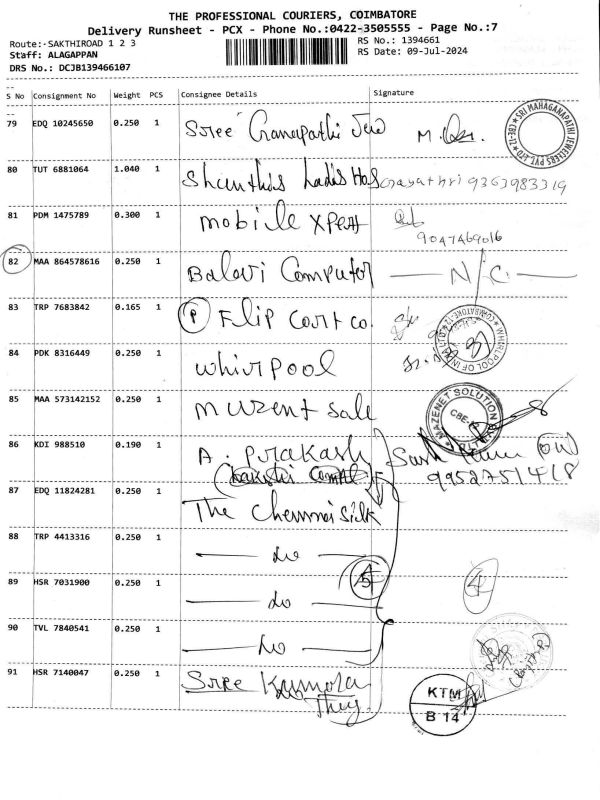 THE PROFESSIONAL COURIERS, COIMBATORE
Delivery Runsheet - PCX - Phone No.:0422-3505555 - Page No.:7
Route:-SAKTHIROAD 1 2 3
RS No.: 1394661
Staff: ALAGAPPAN
RS Date: 09-Jul-2024
DRS No.: DCJB139466107
S No Consignment No Weight PCS Consignee Details Signature
79 EDQ 10245650 0.250 1 Sree Ganapathi Jew
SRI MAHAGANAPATHI JEWELLERS PVT. LTD CBE-12
80 TUT 6881064 1.040 1 Shanthis Ladis Hos Gayathri 9363983319
81 PDM 1475789 0.300 1 Mobile Xpert
9047469016
82 MAA 864578616 0.250 1 Balavi Computer N/C
83 TRP 7683842 0.165 1 P Flip Cart co.
84 PDK 8316449 0.250 1 Whirpool
WHIRLPOOL OF INDIA LTD COIMBATORE-12
85 MAA 573142152 0.250 1 Muzent Sale
MAZENET SOLUTION CBE
86 KDI 988510 0.190 1 A. Prakash
9952751418
87 EDQ 11824281 0.250 1 The Chennai Silk
88 TRP 4413316 0.250 1 do
89 HSR 7031900 0.250 1 do 4
90 TVL 7840541 0.250 1 do
91 HSR 7140047 0.250 1 Sree Kumora
Thug.
KTM
B 14